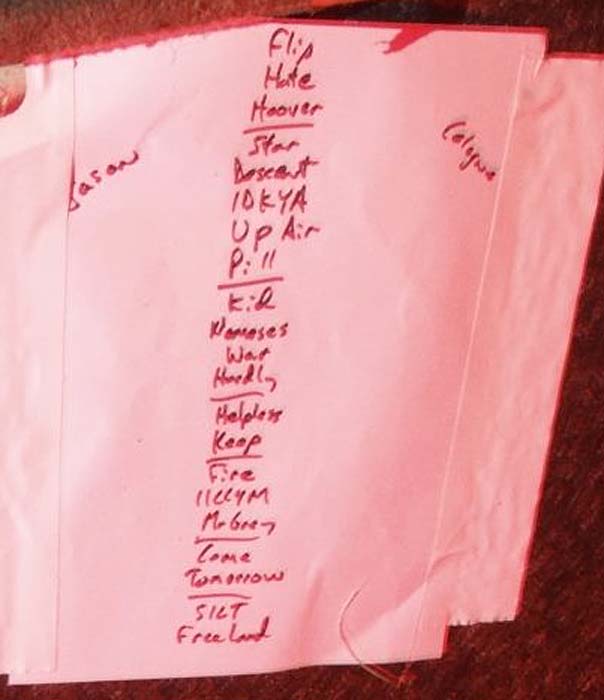 Flip
Hate
Hoover
Jason
Cologne
Star
Descent
IDKYA
Up Air
Pill
Kid
Nemeses
War
Hardly
Helpless
Keep
Fire
IICCYM
Mr Grey
Come
Tomorrow
SILT
Freeland